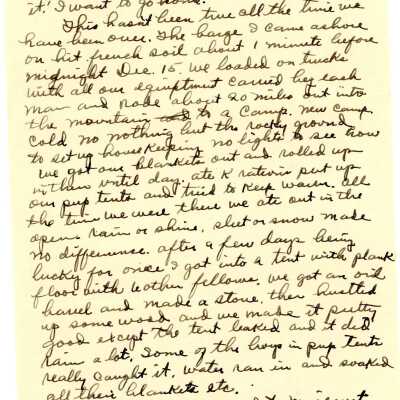 it! I want to go home.
This hasn't been true all the time we
have been over. The barge I came ashore
on hit french soil about 1 minute before
midnight Dec. 15. We loaded on trucks
with all our equiptment carried by each
man and rode about 20 miles out into
the mountains to a camp. new camp
cold no nothing but the rocky ground
to set up housekeeping no lights to see how
we got our blankets out and rolled up
within until day. ate K rations put up
our pup tents and tried to keep warm. all
the time we were there we ate out in the
open rain or shine, sleet or snow made
no difference. after a few days being
lucky for once I got into a tent with plank
floor with 6 other fellows. we got an oil
barrel and made a stove, then hustled
up some wood and we made it pretty
good except the tent leaked and it did
rain a lot. Some of the boys in pup tents
really caught it, water ran in and soaked
all their blankets etc.